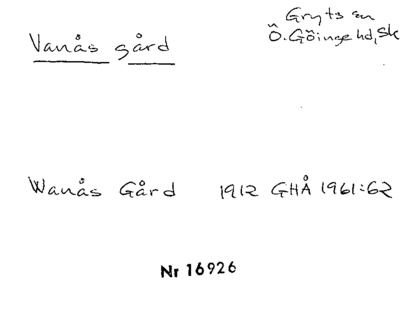 Vanås gård
Gryts sn
Ö. Göinge hd, Sk
Wanås Gård 1912 GHÅ 1961:62
Nr 16926